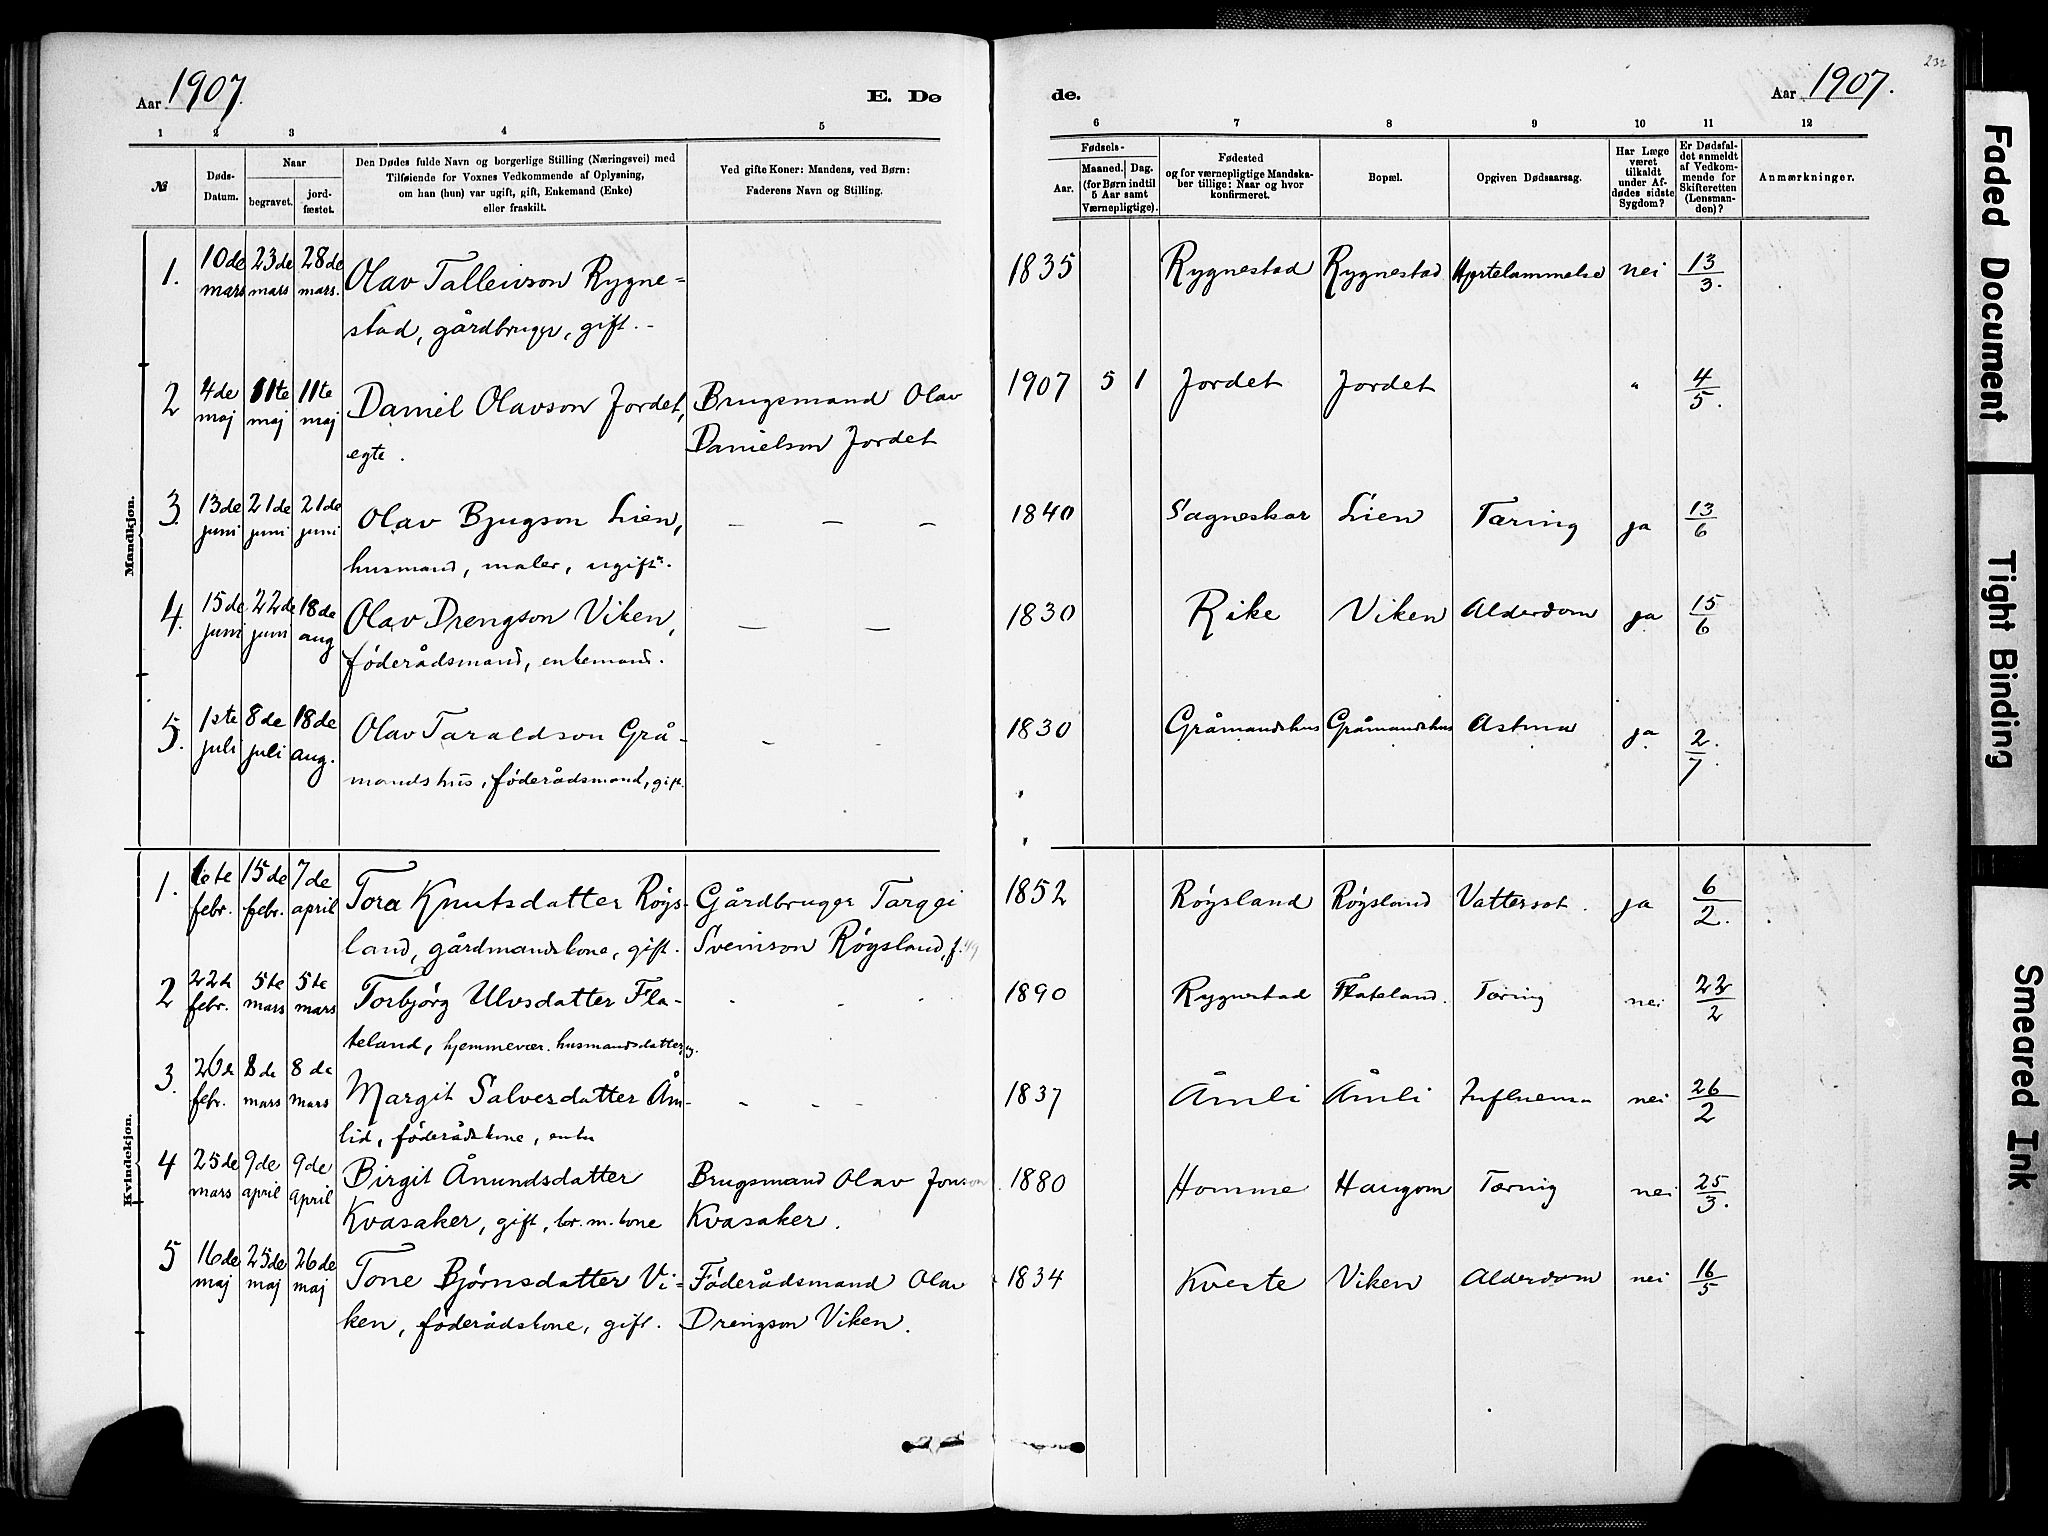 232
Aar 1907.
E. Dø
de.
Aar 1907.
1 2 3 4 5 6 7 8 9 10 11 12
№
Døds-Datum.
Naar
begravet.
jord-fæstet.
Den Dødes fulde Navn og borgerlige Stilling (Næringsvei) med
Tilføiende for Voxnes Vedkommende af Oplysning,
om han (hun) var ugift, gift, Enkemand (Enke)
eller fraskilt.
Ved gifte Koner: Mandens, ved Børn:
Faderens Navn og Stilling.
Fødsels-
Aar.
Maaned. Dag.
(for Børn indtil
5 Aar samt
Værnepligtige).
Fødested
og for værnepligtige Mandska-
ber tillige: Naar og hvor
konfirmeret.
Bopæl.
Opgiven Dødsaarsag.
Har Læge
været
tilkaldt
under Af-
dødes sidste
Sygdom?
Er Dødsfal-
det anmeldt
af Vedkom-
mende for
Skifteretten
(Lensman-
den)?
Anmærkninger.
Mandkjøn.
1. 10de mars 23de mars 28de mars. Olav Talleivson Rygne- 1835 Rygnestad Rygnestad Hjertelammelse nei 13/3.
stad, gårdbruger, gift.-
2 4de maj 11te maj 11te maj Daniel Olavson Jordet, Brugsmand Olav 1907 5 1 Jordet Jordet " 4/5.
egte. Danielson Jordet
3. 13de juni 21de juni 21de juni Olav Bjugson Lien, — — — 1840 Sagneskar Lien Tæring ja 13/6
husmand, maler, ugift.
4. 15de juni 22de juni 18de aug Olav Drengson Viken, — — 1830 Rike Viken Alderdom ja 15/6
føderådsmand, enkemand.
5. 1ste juli 8de juli 18de aug. Olav Taraldson Grå- - - 1830 Gråmandshus Gråmandshus Astma ja 2/7.
mandshus, føderådsmand, gift.
Kvindekjøn.
1. 6te febr. 15de febr. 7de april Tora Knutsdatter Røys- Gårdbruger Targei 1852 Røysland Røysland Vattersot. ja 6/2.
land, gårdmandskone, gift. Sveinson Røysland, f. 49
2 22de febr. 5te mars 5te mars Torbjørg Ulvsdatter Fla- - - - 1890 Rygnestad Flateland. Tæring nei 22/2
teland, hjemmevær. husmandsdatter, ug.
3. 26de febr. 8de mars 8de mars Margit Salvesdatter Åm- - - - 1837 Åmli Åmli Influensa nei 26/2
lid, føderådskone, enke
4 25de mars 9de april 9de april Birgit Ånundsdatter Brugsmand Olav Jonson 1880 Homme Haugom Tæring nei 25/3.
Kvasaker, gift, br. m. kone Kvasaker.
5 16de maj 25de maj 26de maj Tone Bjørnsdatter Vi- Føderådsmand Olav 1834 Kveste Viken Alderdom nei 16/5
ken, føderådskone, gift. Drengson Viken.
Faded Document
Tight Binding
Smeared Ink